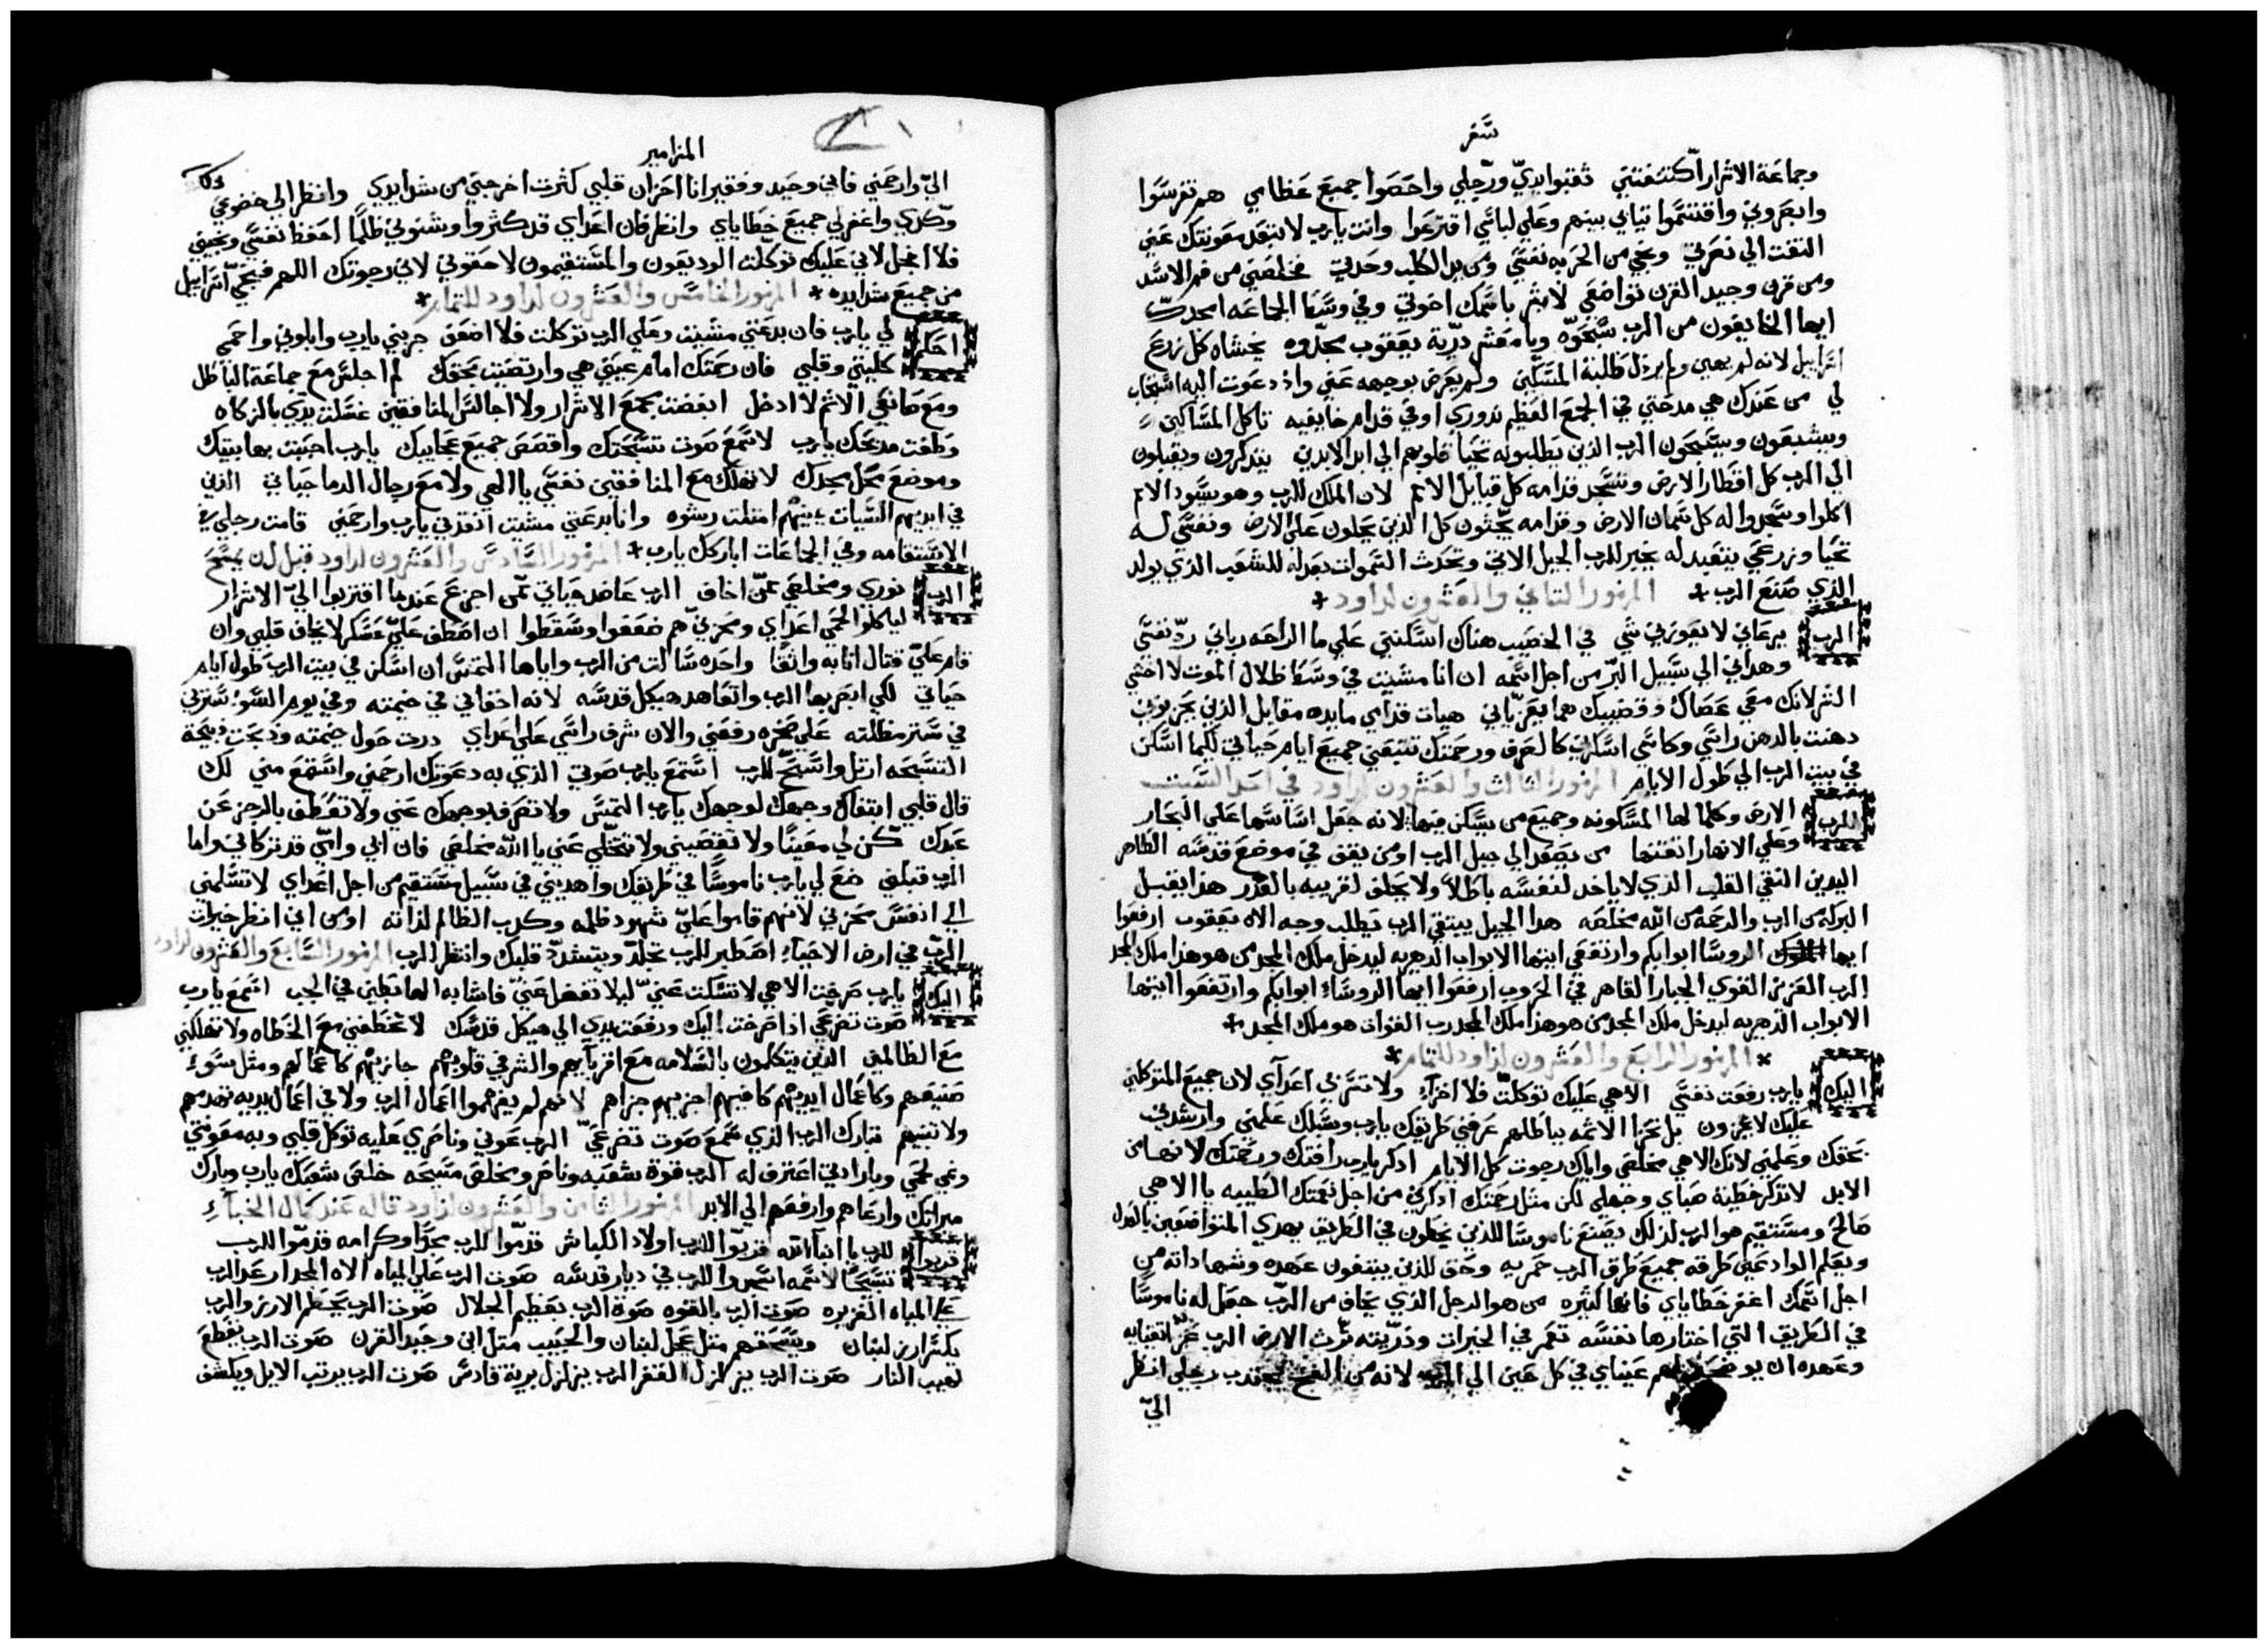 سفر
وجماعة الاشرار اكتنفتني ثقبوا يديّ ورجلي واحصوا جميع عظامي هم تفرسوا
وابصروني واقتسموا ثيابي بينهم وعلي لباسي اقترعوا وانت يارب لا تبعد معونتك عني
التفت الي نصرتي ونجي من الحربه نفسي ومن يد الكلب وحدتي خلصني من فم الاسد
ومن قرن وحيد القرن تواضعي لابشر باسمك اخوتي وفي وسط الجماعه امجدك
ايها الخايفون من الرب سبحوه ويا معشر ذرية يعقوب مجدوه يخشاه كل زرع
اسراييل لانه لم يهين ولم يرذل طلبة المسكين ولم يعرض بوجهه عني واذ دعوت اليه استجاب
لي من عندك هي مدحتي في الجمع العظيم نذوري اوفي قدام خايفيه تاكل المساكين
ويشبعون ويسبحون الرب الذين يطلبونه تحيا قلوبهم الي ابد الابدين يتذكرون ويقبلون
الي الرب كل اقطار الارض وتسجد قدامه كل قبايل الامم لان الملك للرب وهو يسود الامم
اكلوا وسجدوا له كل سمان الارض وقدامه يجثون كل الذين يحلون علي الارض ونفسي له
تحيا وزرعي يتعبد له يخبر للرب الجيل الاتي وتحدث السموات بعدله للشعب الذي يولد
الذي صنع الرب * المزمور الثاني والعشرون لداود *
الرب يرعاني لا يعوزني شي في الخصب هناك اسكنني علي ما الراحه رباني ردّ نفسي
وهداني الي سبيل البرّ من اجل اسمه ان انا مشيت في وسط ظلال الموت لا اخشي
الشر لانك معي عصاك وقضيبك هما يعزياني هيات قدامي مايده مقابل الذين يحزنوني
دهنت بالدهن راسي وكاسي اسكرتني كالصرف ورحمتك تتبعني جميع ايام حياتي لكيما اسكن
في بيت الرب الي طول الايام المزمور الثالث والعشرون لداود في احد السبت
للرب الارض وكمالها المسكونه وجميع من يسكن فيها لانه جعل اساسها علي البحار
وعلي الانهار اتقنها من يصعد الي جبل الرب او من يقف في موضع قدسه الطاهر
اليدين النقي القلب الذي لا ياخد لنفسه باطلاً ولا يحلف لقريبه بالغدر هذا يقبل
البركه من الرب والرحمه من الله مخلصه هدا الجيل يبتغي الرب يطلب وجه الاه يعقوب ارفعوا
ايها الروسا ابوابكم وارتفعي ايتها الابواب الدهريه ليدخل ملك المجد من هو هذا ملك المجد
الرب العزيز القوي الجبار القاهر في الحروب ارفعوا ايها الروساء ابوابكم وارتفعوا ايتها
الابواب الدهريه ليدخل ملك المجد من هو هذا ملك المجد رب القوات هو ملك المجد *
* المزمور الرابع والعشرون لداود للتمام *
اليك يارب رفعت نفسي الاهي عليك توكلتّ فلا اخزاء ولا تسر بي اعداي لان جميع المتوكلين
عليك لا يخزون بل تخزا الاثمه بباطلهم عرفني طريقك يارب وسبلك علمني وارشدني
بحقك وعلمني لانك الاهي مخلصي واياك رجوت كل الايام اذكر يارب رافتك ورحمتك لانها من
الابد لا تذكر خطية صباي وجهلي لكن مثل رحمتك اذكرني من اجل نعمتك الطيبه يا الاهي
صالح ومستقيم هو الرب لذلك يصنع ناموسا للذين يخطون في الطريق يهدي المتواضعين بالعدل
ويعلم الوادعين طرقه جميع طرق الرب رحمه وحق للذين يبتغون عهده وشهاداته من
اجل اسمك اغفر خطاياي فانها كثيره من هو الرجل الذي يخاف من الربّ جعل له ناموسا
في الطريق التي اختارها نفسه تعمر في الخيرات وذرّيته ترث الارض الرب عزّ لتقيايه
وعهده ان يوضحه لهم عيناي في كل حين الي الرب لانه من الفخ يجتذب رجلي انظر
اليّ
المزامير
اليّ وارحمني فاني وحيد وفقير انا احزان قلبي كثرت اخرجني من شدايدي وانظر الي خضوعي
وكدي واغفر لي جميع خطاياي وانظر فان اعداي قد كثروا وشنوني ظلماً احفظ نفسي ونجيني
فلا اخجل لاني عليك توكلت الوديعون والمستقيمون لاحقوني لاني رجوتك اللهم فنجيّ اسراييل
من جميع شدايده * المزمور الخامس والعشرون لداود للتمام *
احكم لي يارب فان بدعتي مشيت وعلي الرب توكلت فلا اضعف جربني يارب وابلوني واحمي
كليتي وقلبي فان رحمتك امام عينيّ هي وارتضيت بحقك لم اجلس مع جماعة الباطل
ومع صانعي الاثم لا ادخل ابغضت مجمع الاشرار ولا اجالس المنافقين غسلت يدي بالزكاه
وطفت مدبحك يارب لاسمع صوت تسبحتك واقصص جميع عجايبك يارب احببت بها بيتك
وموضع محل مجدك لا تهلك مع المنافقين نفسي يا الهي ولا مع رجال الدما حياتي الذين
في ايديهم السيات يمينهم امتلت رشوه وانا بدعتي مشيت انقذني يارب وارحمني قامت رجلي في
الاستقامه وفي الجماعات اباركك يارب * المزمور السادس والعشرون لداود قبل ان يمسح
الرب نوري ومخلصي ممّن اخاف الرب عاضد حياتي ممّن اجزع عندما اقتربوا اليّ الاشرار
لياكلوا لحمي اعداي ومحزنيّ هم ضعفوا وسقطوا ان اصطف عليّ عسكر لا يخاف قلبي وان
قام عليّ قتال انا به واثقاً واحده سالت من الرب واياها التمس ان اسكن في بيت الرب طول ايام
حياتي لكي ابصر بها الرب واتعاهد هيكل قدسه لانه اخفاني في خيمته وفي يوم السوّ سترني
في ستر مظلته علي صخره رفعني والان شرف راسي علي اعداي درت حول خيمته ودبحت دبيحة
التسبحه ارتل واسبحّ للرب استمع يارب صوتي الذي به دعوتك ارحمني واستمع مني لك
قال قلبي ابتغاك وجهك لوجهك يارب التمس ولا تصرف بوجهك عني ولا تعطف بالرجز عن
عبدك كن لي معيناً ولا تقصيني ولا تتخلّي عني يا الله مخلصي فان ابي وامّي قد تركاني واما
الرب قبلني ضع لي يارب ناموساً في طريقك واهديني في سبيل مستقيم من اجل اعداي لا تسلمني
الي انفس محزني لانهم قاموا عليّ شهود ظلمه وكدب الظالم لذاته اومن اني انظر خيرات
الربّ في ارض الاحياء اصطبر للرب تجلّد ويتشددّ قلبك وانتظر الرب المزمور السابع والعشرون لداود
اليك يارب صرخت الاهي لا تسكت عنيّ ليلا تغفل عنيّ فاشابه الهابطين في الجب اسمع يارب
صوت تضرعي اذا صرخت اليك ورفعت يدي الي هيكل قدسك لا تحطني مع الخطاه ولا تهلكني
مع الظالمين الذين يتكلمون بالسلامه مع اقربايهم والشر في قلوبهم جازيهم كاعمالهم ومثل سوء
صنيعهم وكاعمال ايديهم كافيهم اجزيهم جزاهم لانهم لم يفهموا اعمال الرب ولا في اعمال يديه تهدمهم
ولا تبنيهم تبارك الرب الذي سمع صوت تضرعيّ الرب عوني وناصري عليه توكل قلبي وبه معونتي
ونمي لحمي وبارادتي اعترف له الرب قوة شعبه وناصر ومخلص مسيحه خلص شعبك يارب وبارك
ميراتك وارعاهم وارفعهم الي الابد المزمور الثامن والعشرون لداود قاله عند كمال الخباء
قدموا للرب يا ابناء الله قدموا للرب اولاد الكباش قدّموا للرب مجدًا وكرامه قدمّوا للرب
تسبحًا لاسمه اسجدوا للرب في ديار قدسه صوت الرب علي المياه الاه المجد ارعد الرب
علي المياه الغزيره صوت الرب بالقوه صوة الرب بعظيم الجلال صوت الرب يحطم الارز والرب
يكسّر ارز لبنان ويسحقهم مثل عجل لبنان والحبيب مثل ابن وحيد القرن صوت الرب يقطع
لهيب النار صوت الرب يزلزل القفر الرب يزلزل برية قادس صوت الرب يرتب الايل ويكشف